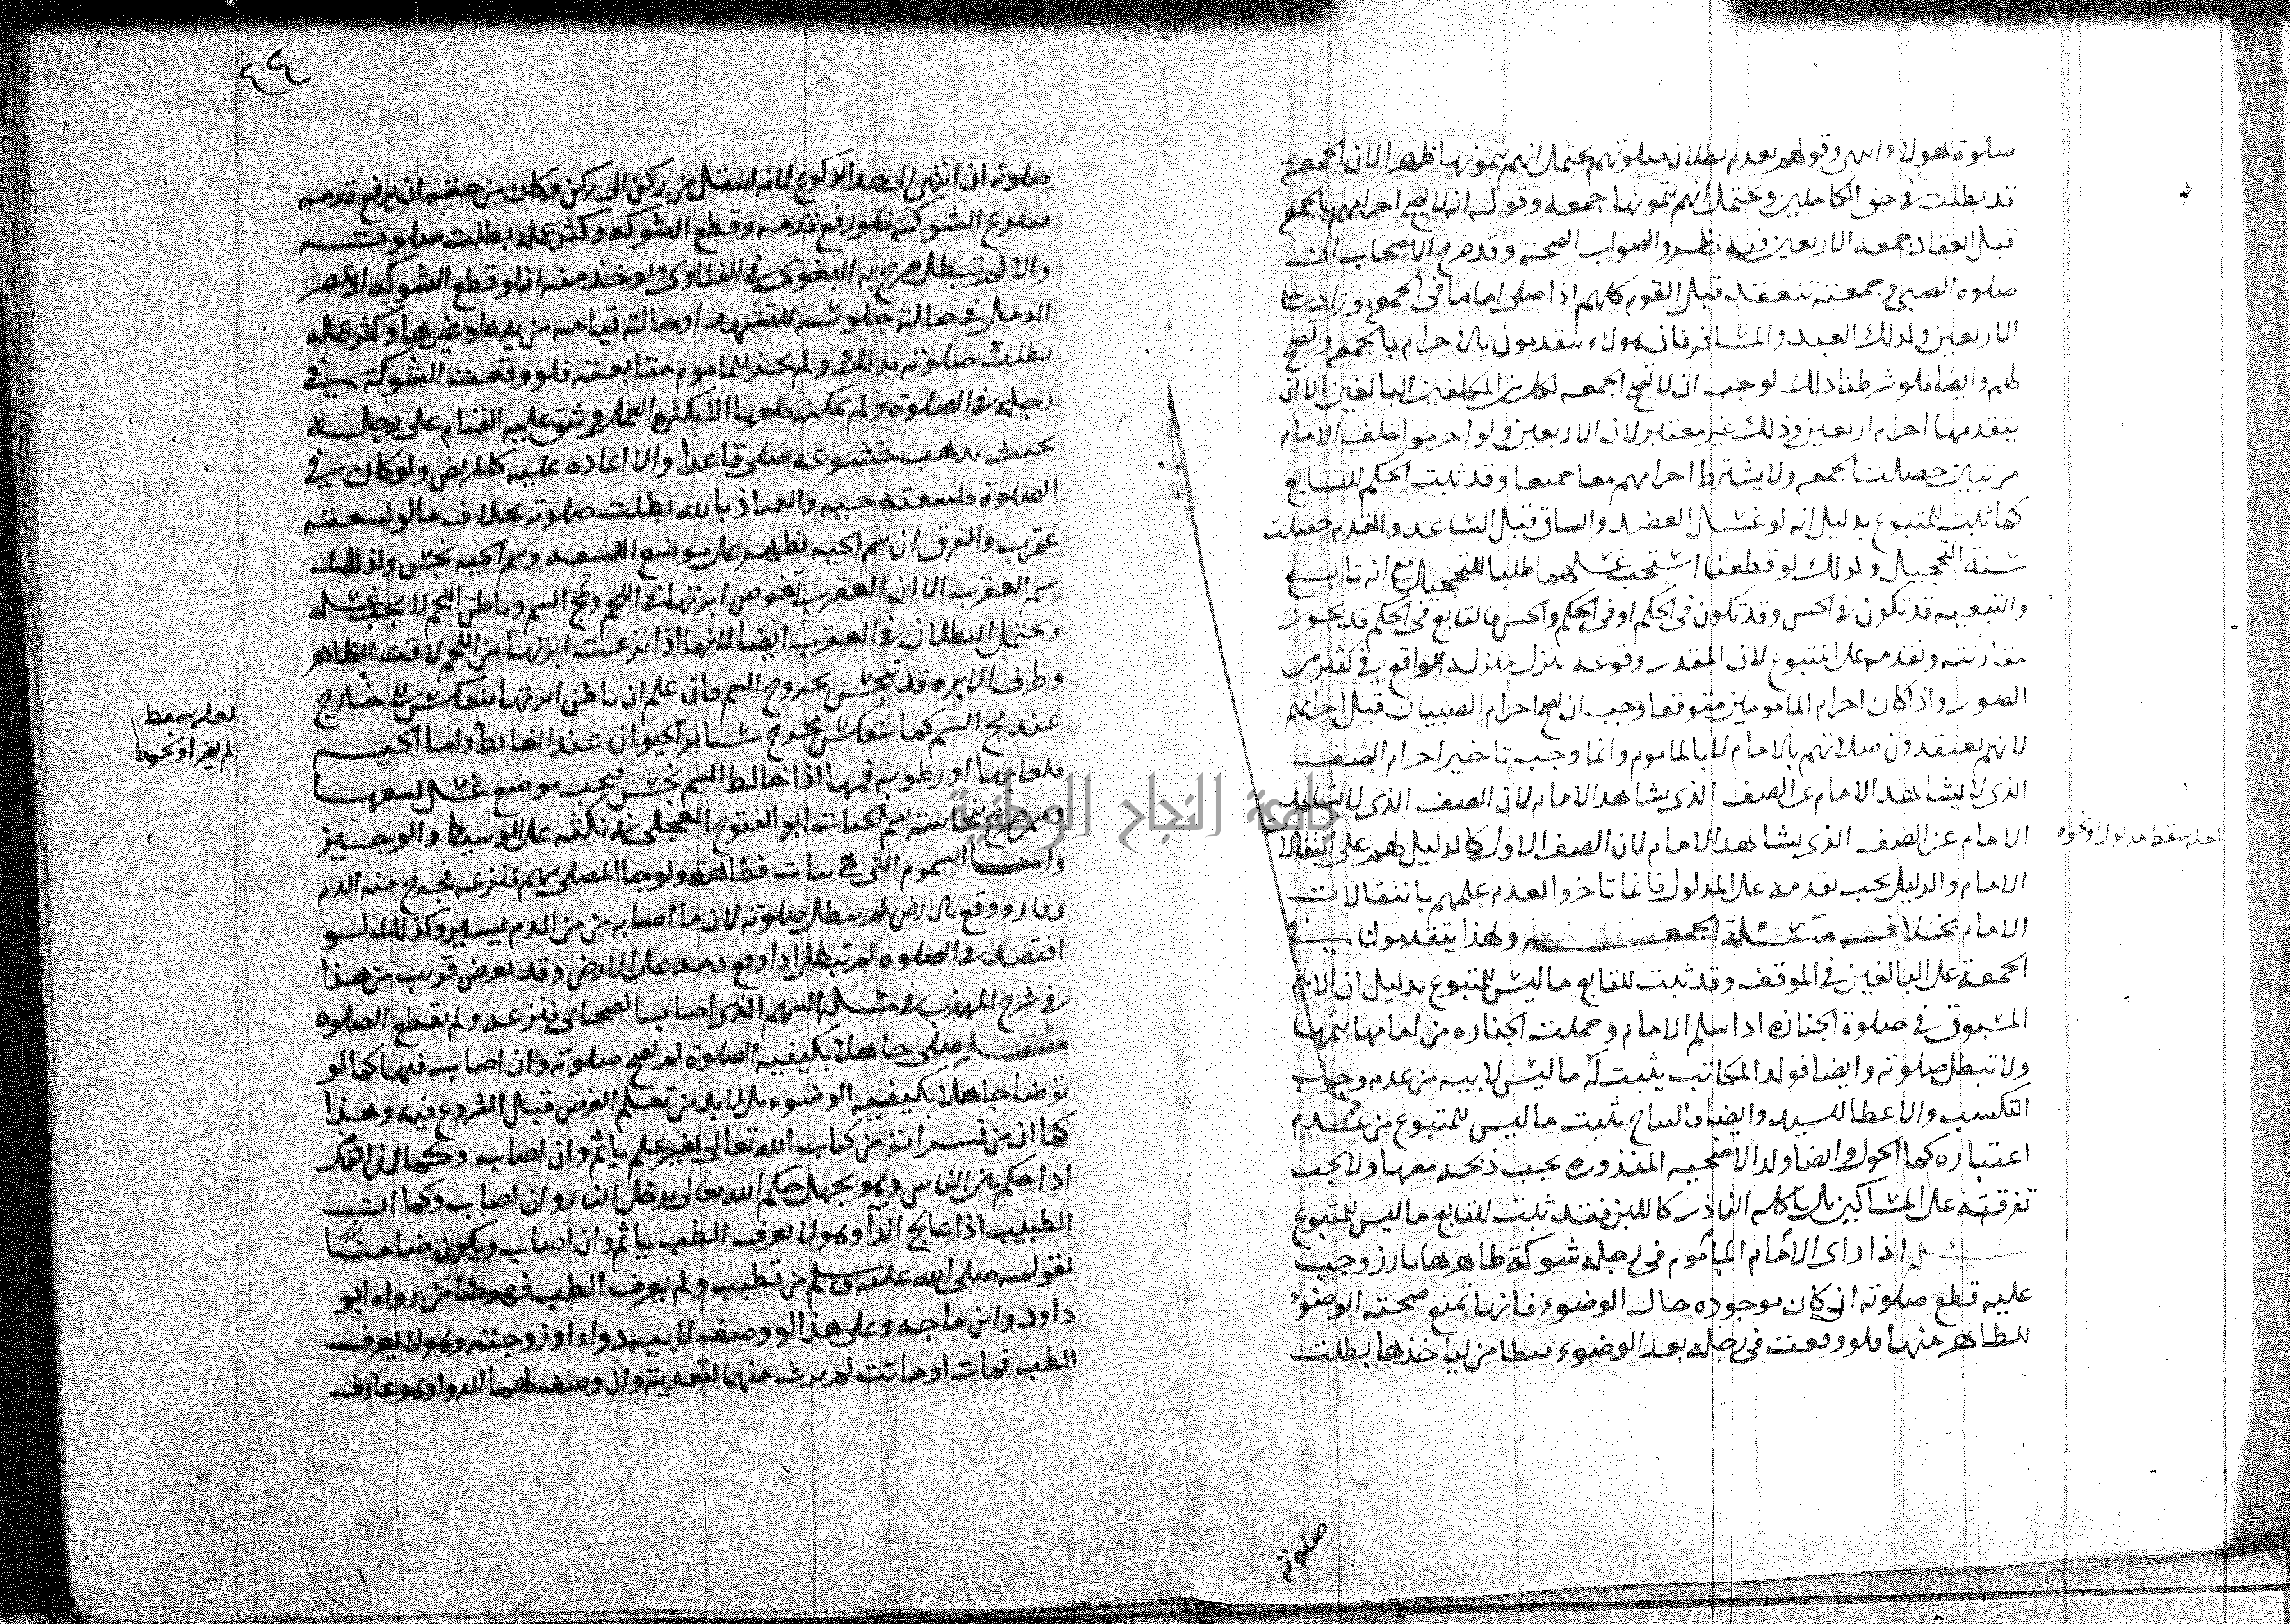 صلوة هولاء الس وقولهم بعدم بطلان صلوتهم يحتمل انهم يتمونها ظهرا لان الجمعة
قد بطلت في حق الكاملين ويحتمل انهم يتمونها جمعه وقوله انه لا يصح احرامهم بالجمعة
قبل انعقاد جمعه الاربعين فيه نظر والصواب الصحة وقد صرح الاصحاب ان
صلوه الصبي وجمعته تنعقد قبل القوم كلهم اذا صلى اماما في الجمعه وزاد على
الاربعين وكذلك العبد والمسافر فان هولاء يتقدمون بالاحرام بالجمعه وتصح
لهم وايضا فلو شرطنا ذلك لوجب ان لا تصح الجمعه لكل من المكلفين البالغين الا ان
يتقدمها احرام اربعين وذلك غير معتبر لان الاربعين ولو احرموا خلف الامام
مرتبين حصلت الجمعه ولا يشترط احرامهم معا جميعا وقد ثبت الحكم للتابع
كما ثبت للمتبوع بدليل انه لو غسل العضد والساق قبل الساعد والقدم حصلت
سنة التحجيل وكذلك لو قطعنا استحب غسلهما طلبا للتحجيل مع انه تابع
والتبعيه قد تكون في الحس وقد تكون في الحكم او في الحكم والحس فالتابع في الحكم قد تجوز
مقارنته وتقدمه على المتبوع لان المقدر وقوعه ينزل منزلة الواقع في كثير من
الصور واذا كان احرام المامومين متوقعا وجب ان يصح احرام الصبيان قبل احرامهم
لانهم يعتقدون صلاتهم بالامام لا بالماموم وانما وجب تاخير احرام الصف
الذي لا يشاهد الامام عن الصف الذي يشاهد الامام لان الصف الذي لا يشاهد
الامام عن الصف الذي يشاهد الامام لان الصف الاول كالدليل لهم على انتقالات
لعله سقط مدلول او نحوه
الامام والدليل يجب تقدمه على المدلول فانما تاخروا لعدم علمهم بانتقالات
الامام بخلاف مسئلة الجمعه ولهذا يتقدمون في
الجمعة على البالغين في الموقف وقد ثبت للتابع ما ليس للمتبوع بدليل ان الامام
المسبوق في صلوة الجنازه اذا سلم الامام وحملت الجنازه من امامها يتمها
ولا تبطل صلوته وايضا فولد المكاتب يثبت له ما ليس لابيه من عدم وجوب
التكسب والاعطا للسيد وايضا فالنتاج يثبت ما ليس للمتبوع من عدم
اعتباره كما الحول وايضا ولد الاضحيه المنذوره يجب ذبحه معها ولا يجب
تفرقته على المساكين بل ياكله الناذر كاللبن فقد ثبت للتابع ما ليس للمتبوع
مسئله اذا راى الامام الماموم في رجله شوكة ظاهرها بارز وجب
عليه قطع صلوته ان كان موجوده حال الوضوء فانها تمنع صحة الوضوء
للظاهر منها فلو وقعت في رجله بعد الوضوء فتطامن لياخذها بطلت
صلوته
٤٤
صلوته ان انتهى الى حد الركوع لانه انتقل من ركن الى ركن وكان من حقه ان يرفع قدمه
وينزع الشوكه فلو رفع قدمه وقطع الشوكه وكثر عمله بطلت صلوته
والا لم تبطل صرح به البغوي في الفتاوى ويوخذ منه انه لو قطع الشوكه او عصر
الدمل في حالة جلوسه للتشهد او حالة قيامه من يده او غيرها وكثر عمله
بطلت صلوته بذلك ولم يجز للماموم متابعته فلو وقعت الشوكة في
رجله في الصلوة ولم يمكنه قلعها الا بكثره العمل وشق عليه القيام على رجله
بحيث يذهب خشوعه صلى قاعدا ولا اعاده عليه كالمريض ولو كان في
الصلوة فلسعته حيه والعياذ بالله بطلت صلوته بخلاف ما لو لسعته
عقرب والفرق ان سم الحيه يظهر على موضع اللسعه وسم الحيه نجس وكذلك
سم العقرب الا ان العقرب تغوص ابرتها في اللحم وتمج السم وباطن اللحم لا يجب غسله
ويحتمل البطلان في العقرب ايضا لانها اذا نزعت ابرتها من اللحم لاقت الظاهر
وطرف الابره قد تنجس بخروج السم فان علم ان باطن ابرتها ينعكس الى خارج
لعله سقط
لم يضر او نحوها
عند مج السم كما ينعكس مخرج سائر الحيوان عند الغائط واما الحيه
فلعابها او رطوبه فمها اذا خالط السم نجس فيجب موضع غسل لسعها
وممن صرح بنجاسة سم الحيات ابو الفتوح العجلي في نكته على الوسيط والوجيز
واما السموم التي هي نبات فطاهرة ولو جا المصلي سهم فنزعه فخرج منه الدم
وفار ووقع بالارض لم تبطل صلوته لان ما اصابه من من الدم يسير وكذلك لو
افتصد في الصلوه لم تبطل اذا وقع دمه على الارض وقد تعرض قريب من هذا
في شرح المهذب في مسئلة السهم الذي اصاب الصحابي فنزعه ولم يقطع الصلوه
مسئله صلى جاهلا بكيفيه الصلوة لم تصح صلوته وان اصاب فيها كما لو
توضا جاهلا بكيفيه الوضوء بل لا بد من تعلم الفرض قبل الشروع فيه وهذا
كما ان من فسر انة من كتاب الله تعالى بغير علم ياثم وان اصاب وكما ان الفكر
اذا حكم بين الناس وهو يجهل حكم الله تعالى يدخل النار وان اصاب وكما ان
الطبيب اذا عالج الداء وهو لا يعرف الطب ياثم وان اصاب ويكون ضامنا
لقوله صلى الله عليه وسلم من تطبب ولم يعرف الطب فهو ضامن رواه ابو
داود وابن ماجه وعلى هذا لو وصف لابيه دواء او زوجته وهو لا يعرف
الطب فمات او ماتت لم يرث منهما لتعديه وان وصف لهما الدوا وهو عارف